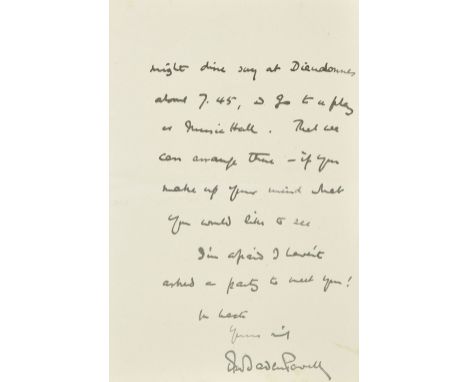 might dine say at Dieudonnés
about 7.45, & go to a play
or Music Hall. That we
can arrange then – if you
make up your mind what
you would like to see
I'm afraid I haven't
asked a party to meet you!
In haste
Yours
Baden Powell